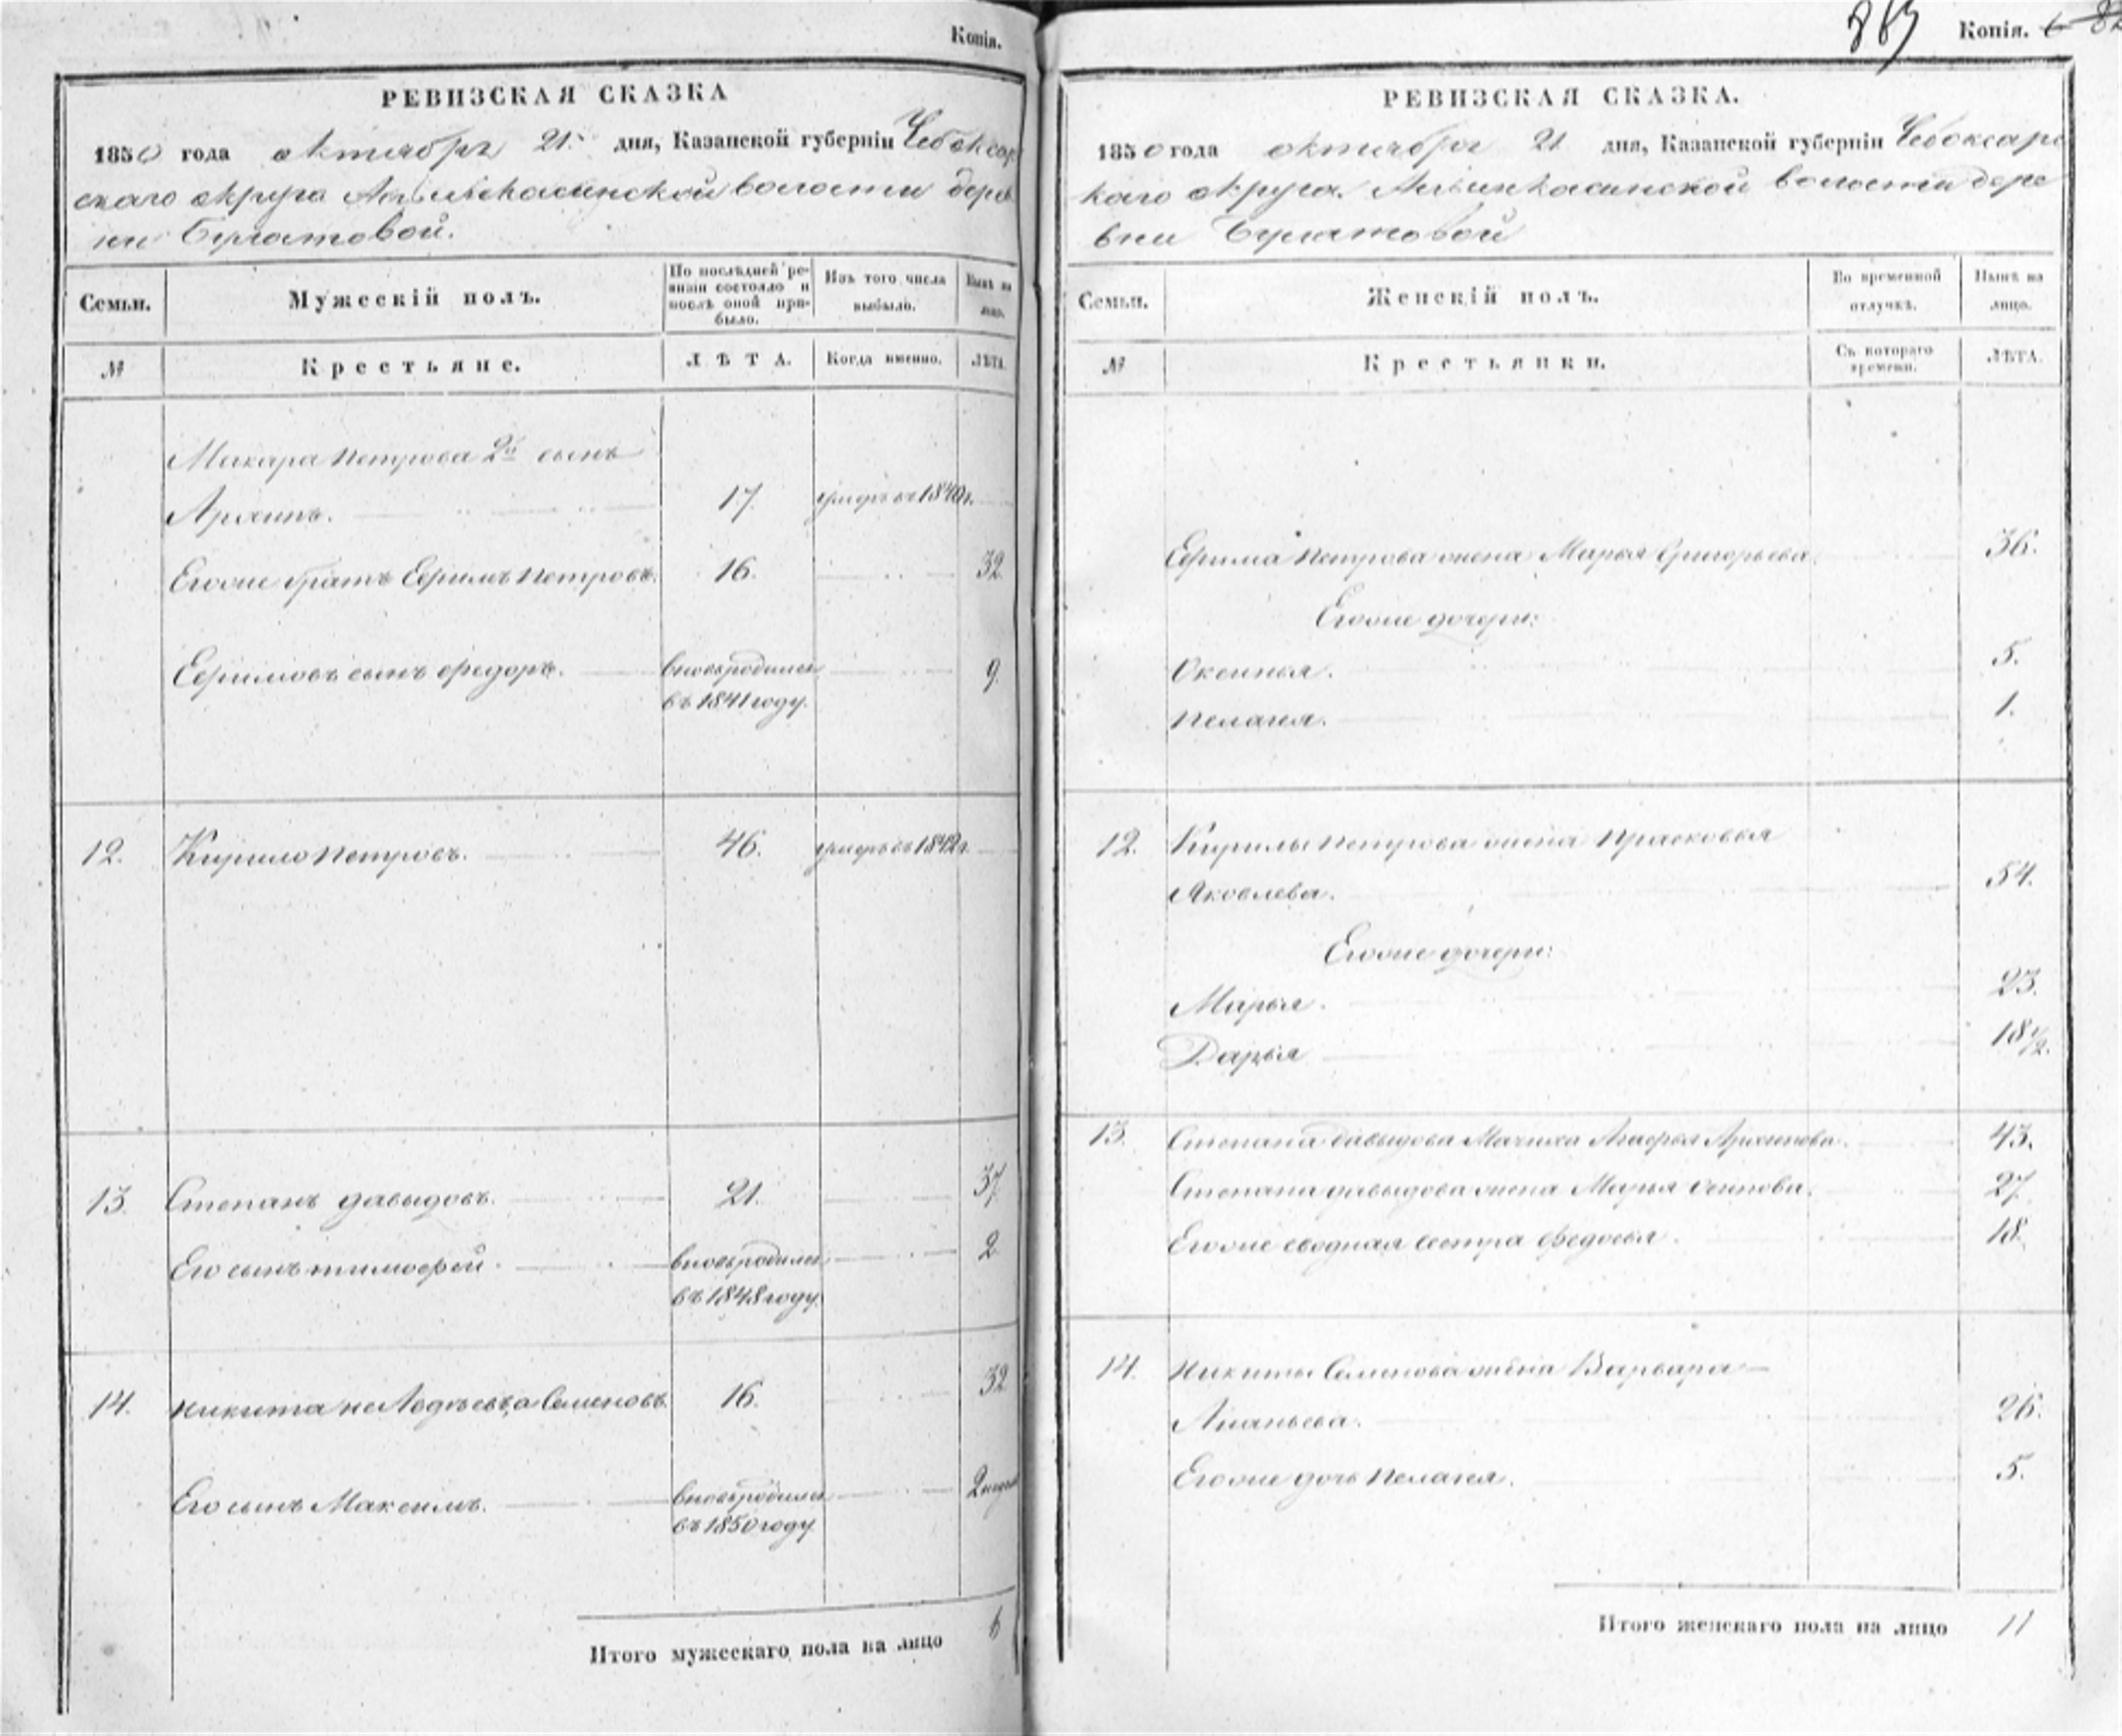 Копія.
РЕВИЗСКАЯ СКАЗКА
1850 года октября 21 дня, Казанской губерніи Чебоксар
скаго округа волости дерев
ни Булатовой.
Семьи.
Мужескій полъ.
По послѣдней ре-
визіи состояло и
послѣ оной при-
было.
Изъ того числа
выбыло.
Нынѣ на
лицо.
№
Крестьяне.
ЛѢТА.
Когда именно.
ЛѢТА.
Макара Петрова 2й сынъ
Архипъ. 17. 1840г.
Егоже братъ Ефримъ Петровъ. 16. 32
Ефримовъ сынъ Федоръ. вновьродился 9.
въ 1841 году.
12. Кирило Петровъ. 46. 1842г.
13. Степанъ Давыдовъ. 21. 37
Его сынъ Тимофей. вновьродился 2
въ 1848 году.
14. Никита не Авдѣевъ, а Семеновъ 16. 32
Его сынъ Максимъ. вновьродился 2
въ 1850 году
Итого мужескаго пола на лицо 6
Копія.
РЕВИЗСКАЯ СКАЗКА.
1850 года октября 21 дня, Казанской губерніи Чебоксарс
каго округа. волости дере
вни Булатовой
Семьи.
Женскій полъ.
Во временной
отлучкѣ.
Нынѣ на
лицо.
№
Крестьянки.
Съ котораго
времени.
ЛѢТА.
Ефрима Петрова жена Марья Григорьева. 36.
Егоже дочери:
Оксинья. 5.
Пелагея. 1.
12. Кирилы Петрова жена Прасковья
Яковлева. 54.
Егоже дочери:
Марья. 23.
Дарья 18 1/2.
13. Степана Давыдова Мачиха Агафья Архипова. 43.
Степана Давыдова жена Марья Осипова. 27
Егоже сводная сестра Федосья. 18.
14. Никиты Семенова жена Варвара
Ананьева. 26.
Егоже дочь Пелагея. 5.
Итого женскаго пола на лицо 11